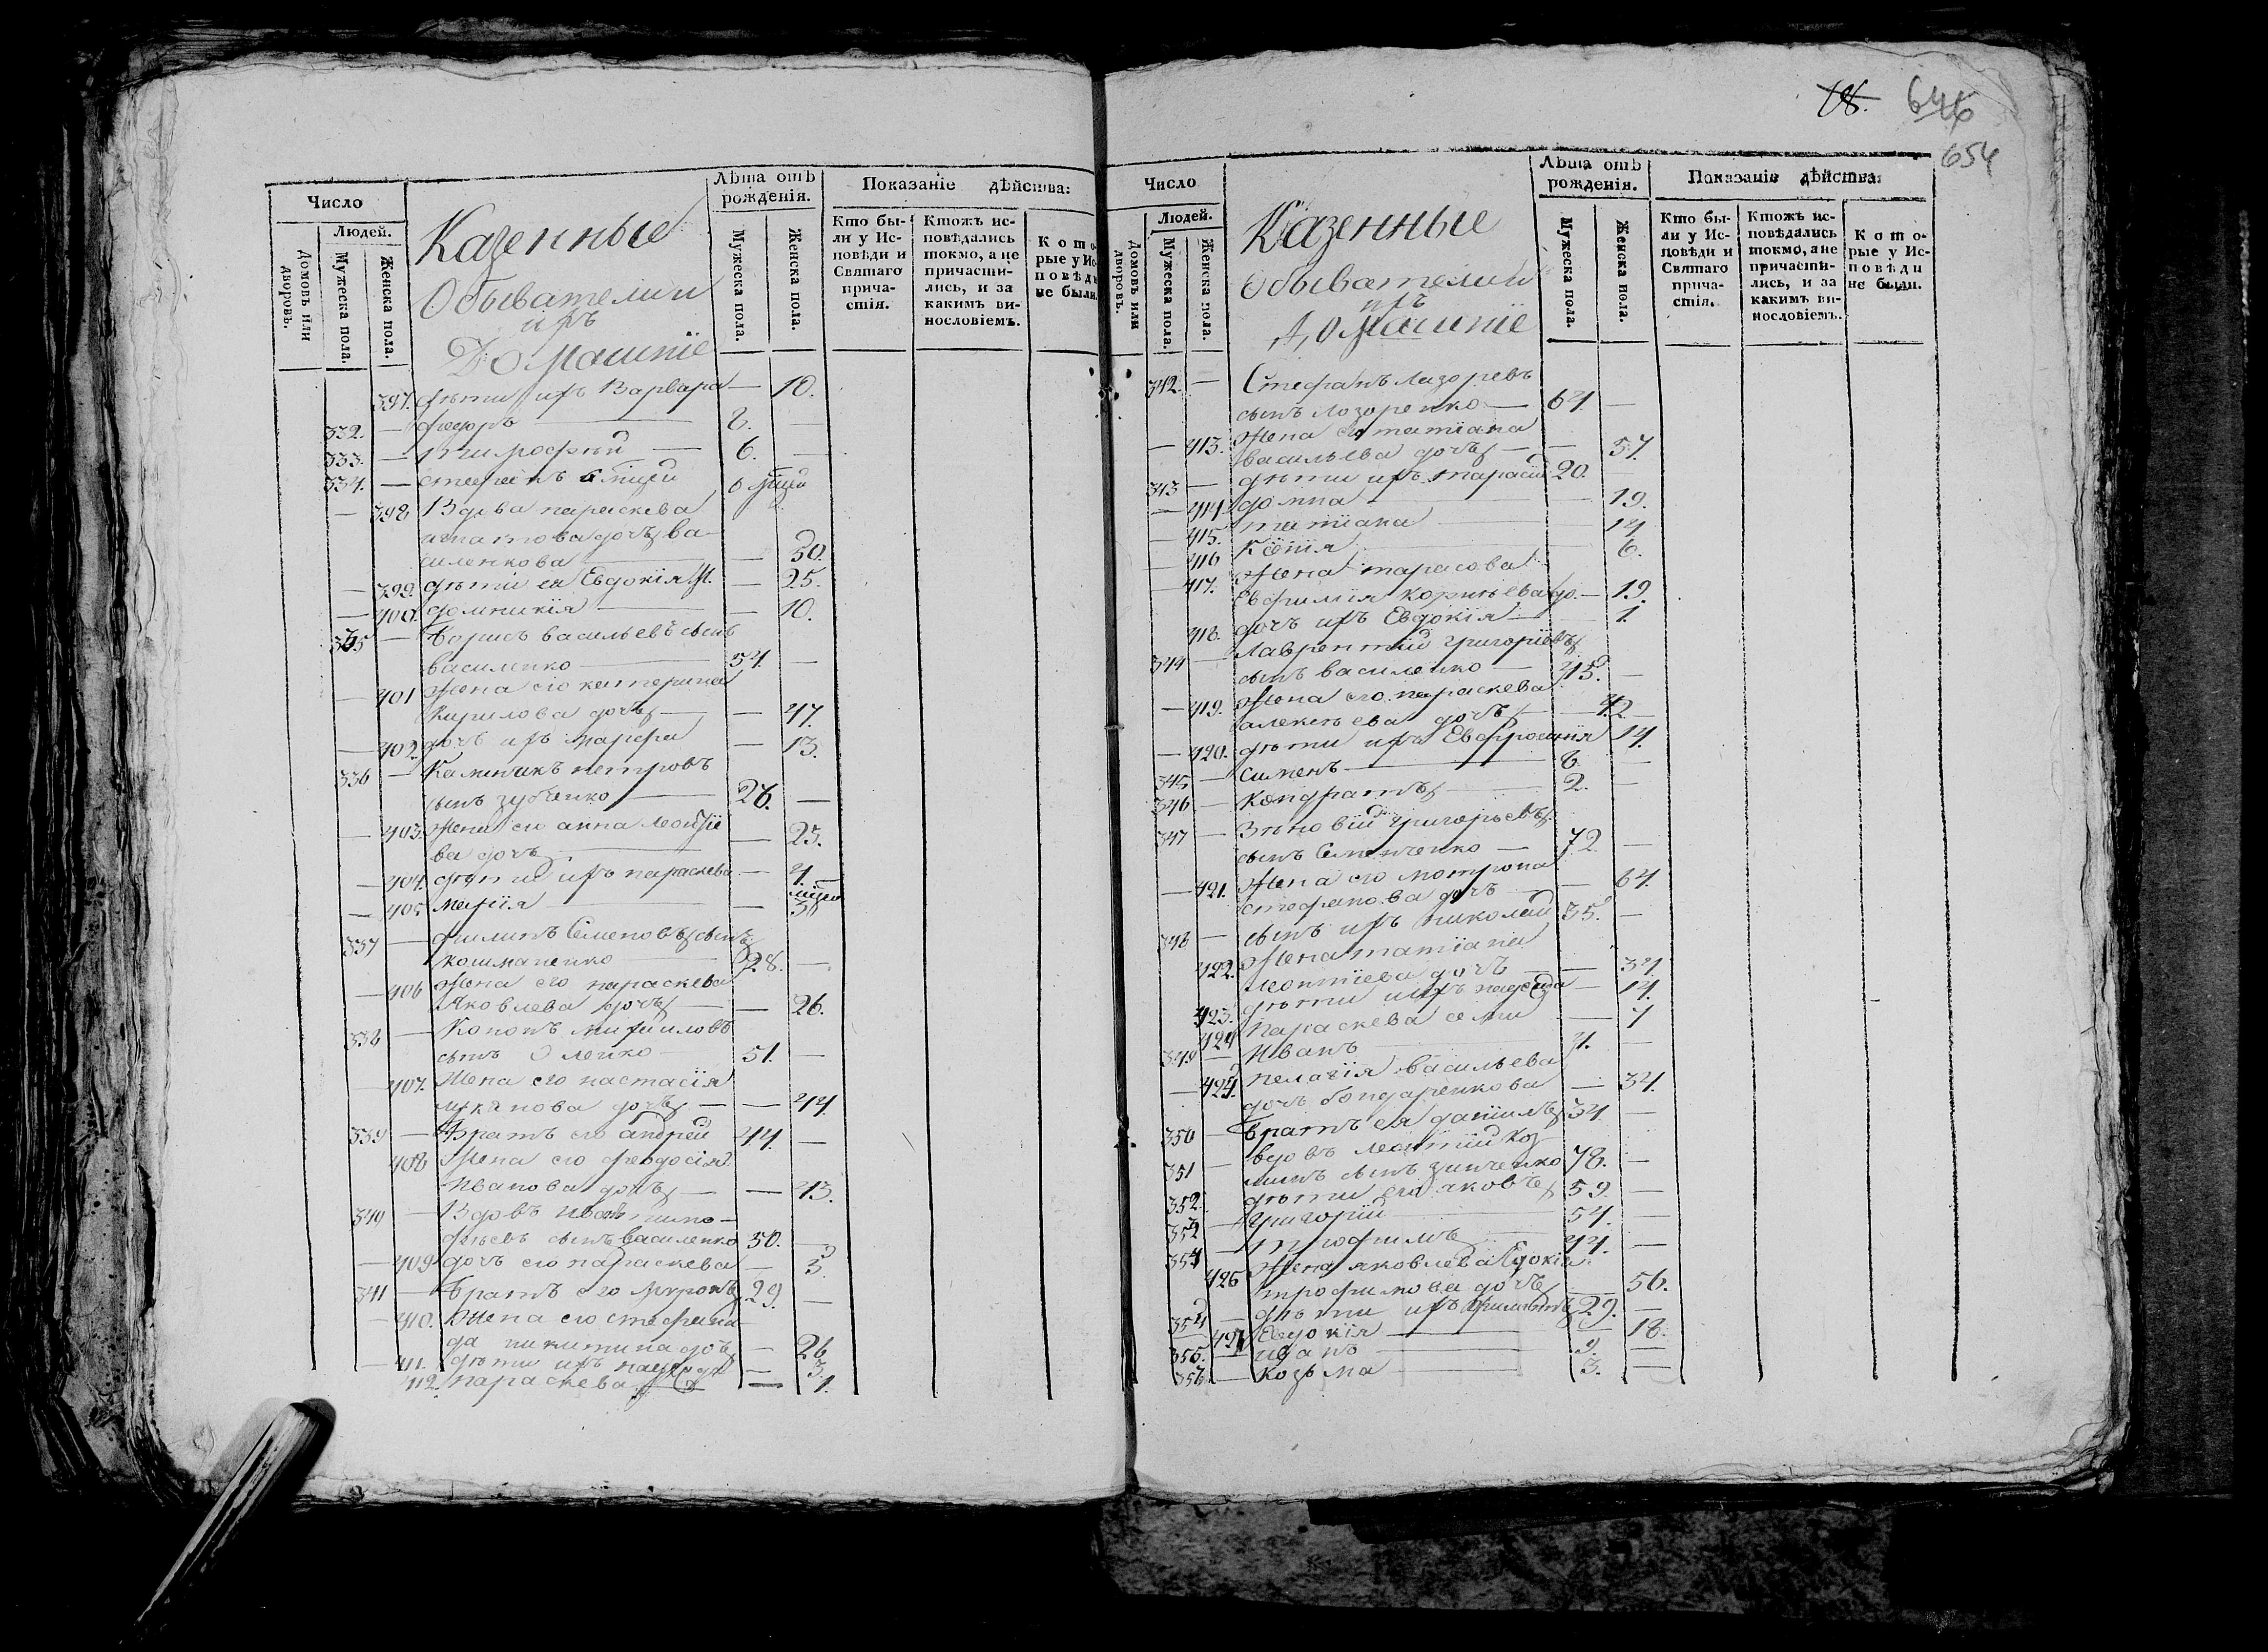 Число
Людей.
Домовъ или дворовъ.
Мужеска пола.
Женска пола.
Казенные
Обыватели и
ихъ
Домашніе
Лѣта отъ
рожденія.
Мужеска пола.
Женска пола.
Показаніе дѣйства:
Кто бы-
ли у Ис-
повѣди и
Святаго
прича-
стія.
Ктожъ ис-
повѣдались
токмо, а не
причасти-
лись, и за
какимъ ви-
нословіемъ.
Кото-
рые у Ис-
повѣди
не были.
397. дѣти ихъ Варвара — 10.
332. — Федоръ — 8. —
333. — Тимофѣй — 6. —
334. — Стефанъ 6 мцей 6 мцей
— 398 Вдова параскева
игнатова дочь ва-
силенкова — 50.
— 399. дѣти ея Евдокія — 25.
— 400. домникія — 10.
335 — Борисъ васильевъ сынъ
василенко — 54. —
— 401 Жена его катерина
Кирилова дочь — — 47.
— 402. дочь ихъ марфа — 13.
336 — Калиникъ петровъ
сынъ зубенко — 28. —
— 403. Жена его анна леонтіе
ва дочь — — 25.
— 404. дѣти ихъ параскева — 4.
— 405 марія — —
337 — филипъ Семеновъ сынъ
кошманенко 28. —
— 406 Жена его параскева
Яковлева дочь — — 26.
338 — Кононъ михаиловъ
сынъ Оленко — 51. —
— 407. Жена его настасія
дочь — — 44.
339 — Братъ его андрей 44. —
408 Жена его феодосія
Иванова дочь — — 43.
340 — Вдовъ Иванъ тимо-
фѣевъ сынъ Василенко 50. —
— 409 дочь его параскева — 5.
341 — Братъ его миронъ 29. —
— 410. Жена его стефани-
да никитина дочь — 26
— 411. дѣти ихъ — 3.
412. параскева — 1.
18. 646
654
Число
Людей.
Домовъ или дворовъ.
Мужеска пола.
Женска пола.
Казенные
Обыватели и
ихъ
Домашніе
Лѣта отъ
рожденія.
Мужеска пола.
Женска пола.
Показаніе дѣйства:
Кто бы-
ли у Ис-
повѣди и
Святаго
прича-
стія.
Ктожъ ис-
повѣдались
токмо, а не
причасти-
лись, и за
какимъ ви-
нословіемъ.
Кото-
рые у Ис-
повѣди
не были.
342. — Стефанъ Лазоревъ
сынъ лазоренко — 64. —
— 413. Жена его татіана
васильева дочь — — 57.
343 — дѣти ихъ тарасій 20.
— 414 домна — — 19.
— 415. татіана — 14
— 416 Ксенія — 6.
— 417. Жена тарасова
Евфимія корнѣева до. — 19.
418. дочь ихъ Евдокія — 1.
344 — Лаврентій григоріевъ
сынъ василенко — 45. —
— 419. Жена его параскева
алексѣева дочь — 42
— 420. дѣти ихъ Евфросинія 14.
345 — Сименъ — 8. —
346 — Кондратъ — 2. —
347 — Зѣновій григорьевъ
сынъ Семенченко — 72 —
— 421. Жена его мотрона
стефанова дочь — 64.
348 — сынъ ихъ николай 35. —
422. Жена татіана
леонтіева дочь — — 34.
423. дѣти ихъ — 14.
424 параскева семи — 7
349 — Иванъ — 4. —
— 425 пелагія васильева
дочь бондаренкова — 34.
350 — Братъ ея даніилъ 34. —
351 — вдовъ леонтій коз-
минъ сынъ зинченко 78. —
352. дѣти его яковъ 59. —
353 — Григорій 54. —
354 — трофимъ — 44. —
426 Жена яковлева Евдокія
трофимова дочь — 56.
354 — дѣти ихъ филипъ 29. —
— 427 Евдокія — 18.
355. — иванъ — 9. —
356. — Козьма — 3. —